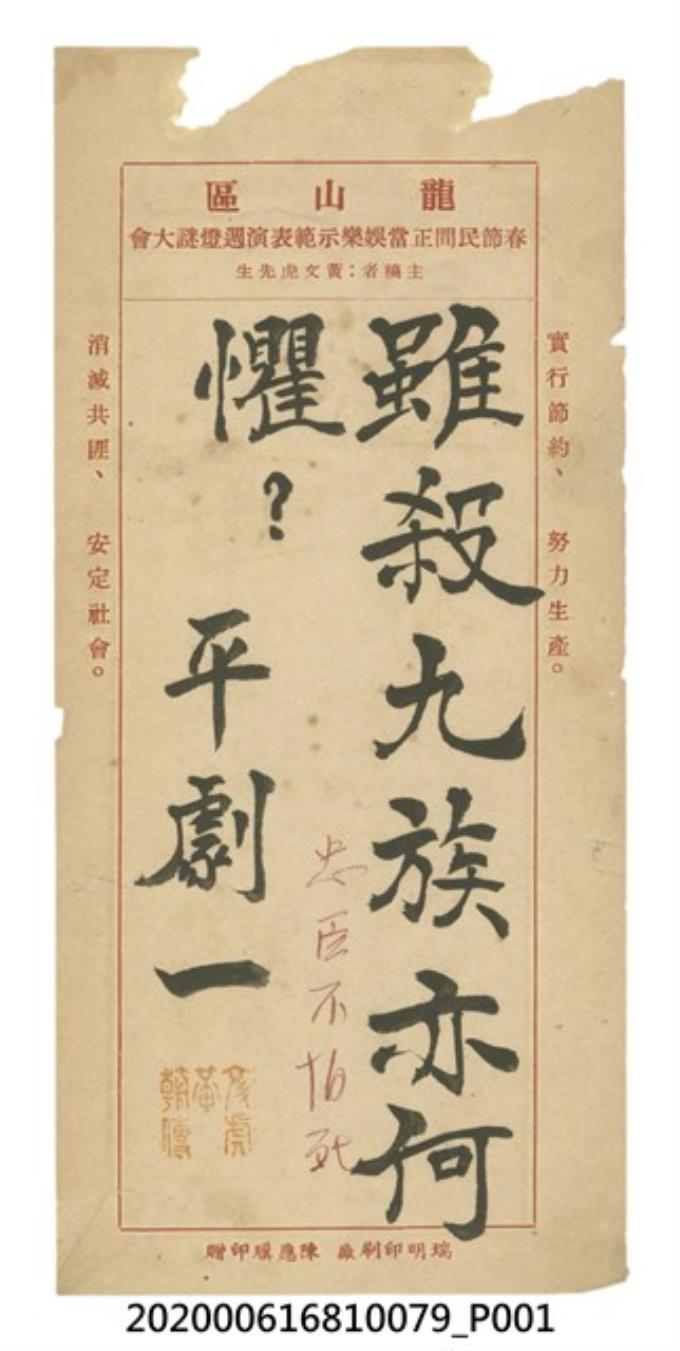 龍山區
春節民間正當娛樂示範表演週燈謎大會
主稿者：黃文虎先生
實行節約、 努力生產。
雖殺九族亦何
懼？ 平劇一
忠臣不怕死
消滅共匪、 安定社會。
瑞明印刷廠 陳應騏印贈
202000616810079_P001